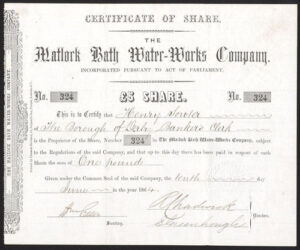 CERTIFICATE OF SHARE.
THE
Matlock Bath Water-Works Company.
INCORPORATED PURSUANT TO ACT OF PARLIAMENT.
No. 324 £5 SHARE. No. 324
This is to Certify that Henry Fowler
of The Borough of Derby Bankers Clerk
is the Proprietor of the Share, Number 324 in The Matlock Bath Water-Works Company, subject
to the Regulations of the said Company, and up to this day there has been paid in respect of such
Share the sum of One pound
Given under the Common Seal of the said Company, the tenth day
of June in the year 186
Chadwick
Secretary.
Greenhough